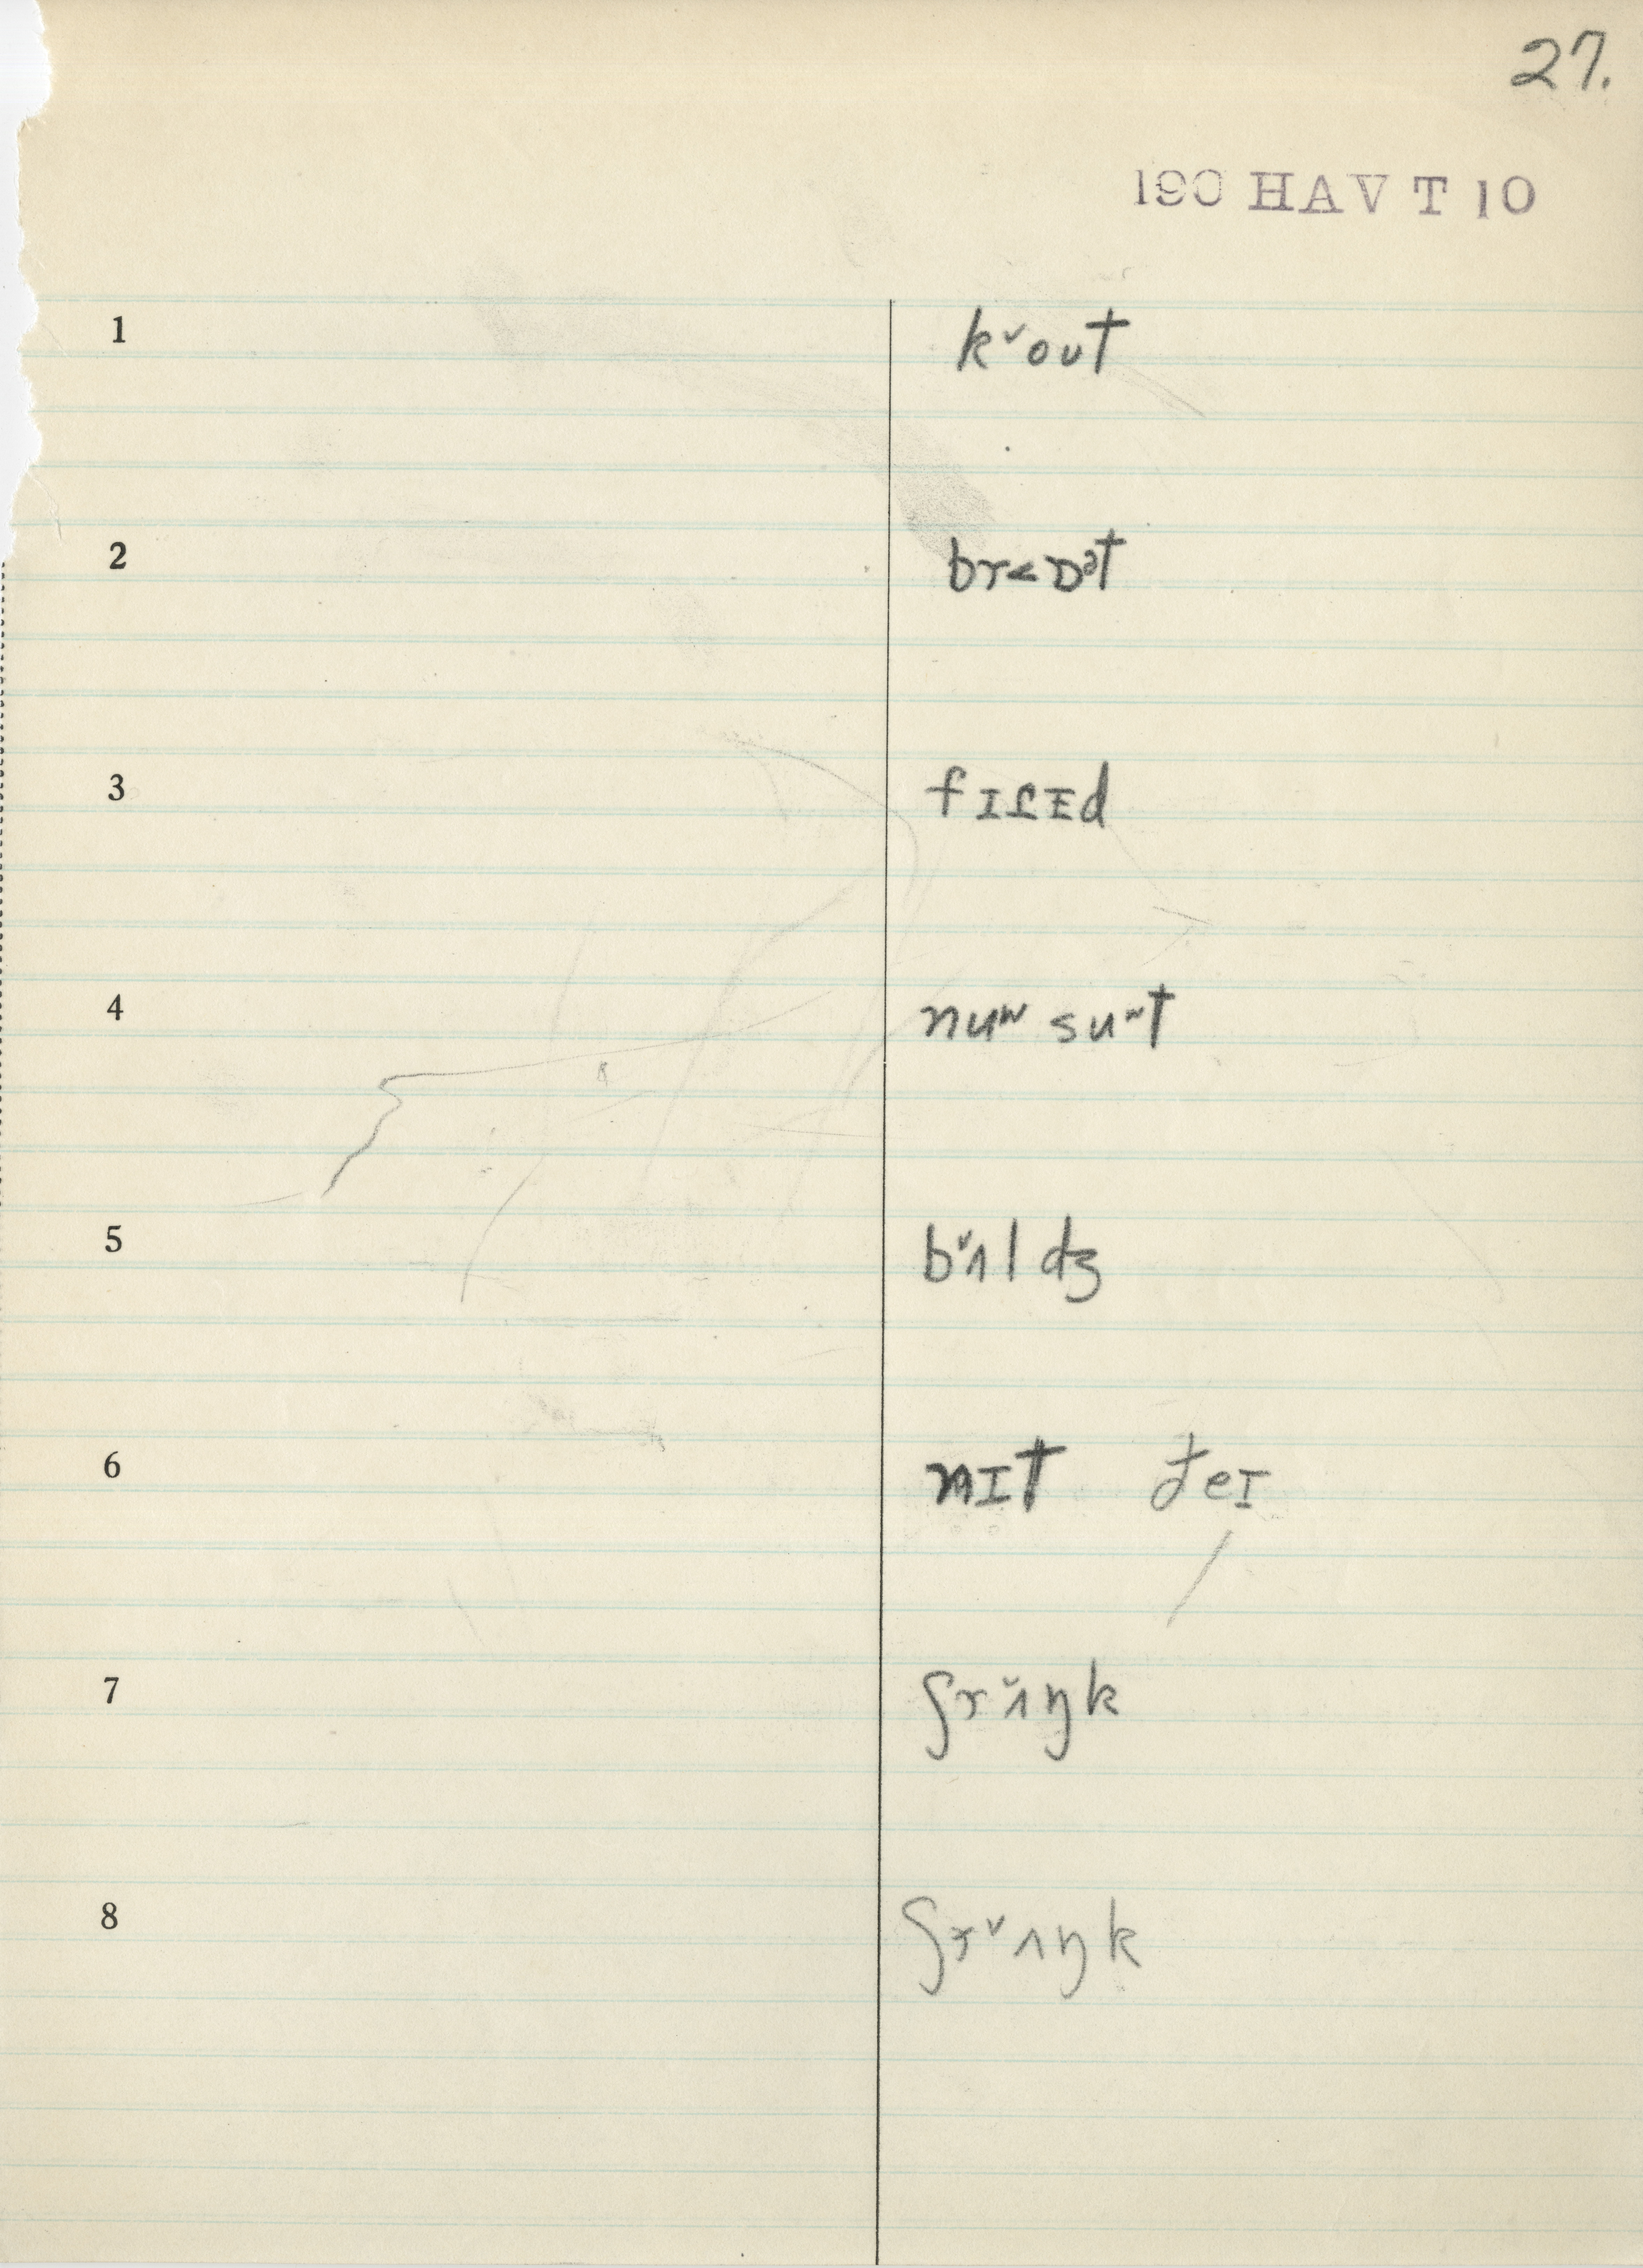 27.
190 HAV T 10
1 k˅out
2 br<ɒᵊt
3 fɪʆɪd
4 nuʷ suʷt
5 b˅ʌldʒ
6 nɪt đeɪ
7 ʃr˅ʌŋk
8 ʃr˅ʌŋk